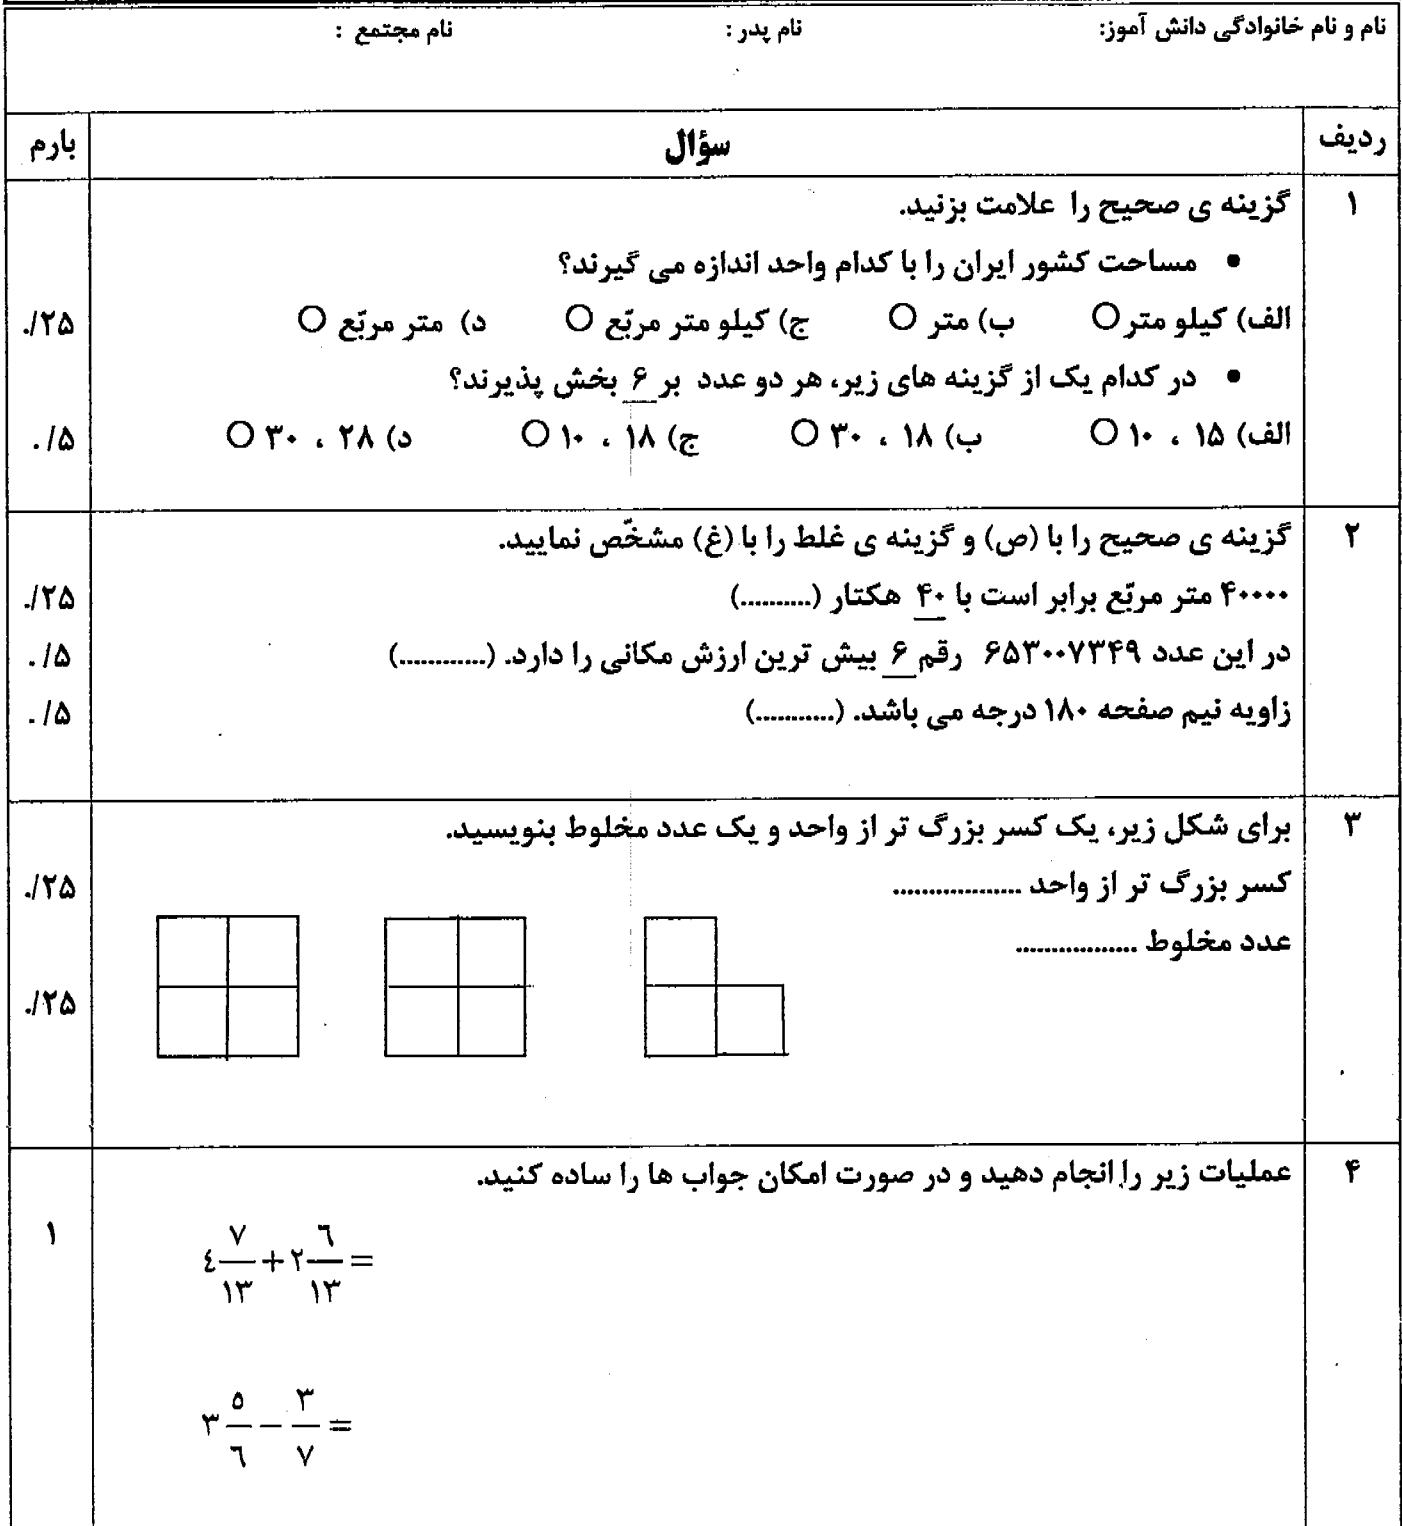 نام و نام خانوادگی دانش آموز: نام پدر : نام مجتمع :
ردیف سؤال بارم
۱ گزینه ی صحیح را علامت بزنید.
• مساحت کشور ایران را با کدام واحد اندازه می گیرند؟
الف) کیلو متر ○ ب) متر ○ ج) کیلو متر مربّع ○ د) متر مربّع ○ ۰/۲۵
• در کدام یک از گزینه های زیر، هر دو عدد بر ۶ بخش پذیرند؟
الف) ۱۵ ، ۱۰ ○ ب) ۱۸ ، ۳۰ ○ ج) ۱۸ ، ۱۰ ○ د) ۲۸ ، ۳۰ ○ ۰/۵
۲ گزینه ی صحیح را با (ص) و گزینه ی غلط را با (غ) مشخّص نمایید.
۴۰۰۰۰ متر مربّع برابر است با ۴۰ هکتار (..........) ۰/۲۵
در این عدد ۶۵۳۰۰۷۳۴۹ رقم ۶ بیش ترین ارزش مکانی را دارد. (............) ۰/۵
زاویه نیم صفحه ۱۸۰ درجه می باشد. (...........) ۰/۵
۳ برای شکل زیر، یک کسر بزرگ تر از واحد و یک عدد مخلوط بنویسید.
کسر بزرگ تر از واحد .................. ۰/۲۵
عدد مخلوط .................
۰/۲۵
۴ عملیات زیر را انجام دهید و در صورت امکان جواب ها را ساده کنید.
٤ ٧/١٣ + ٢ ٦/١٣ = ۱
٣ ٥/٦ − ٣/٧ =